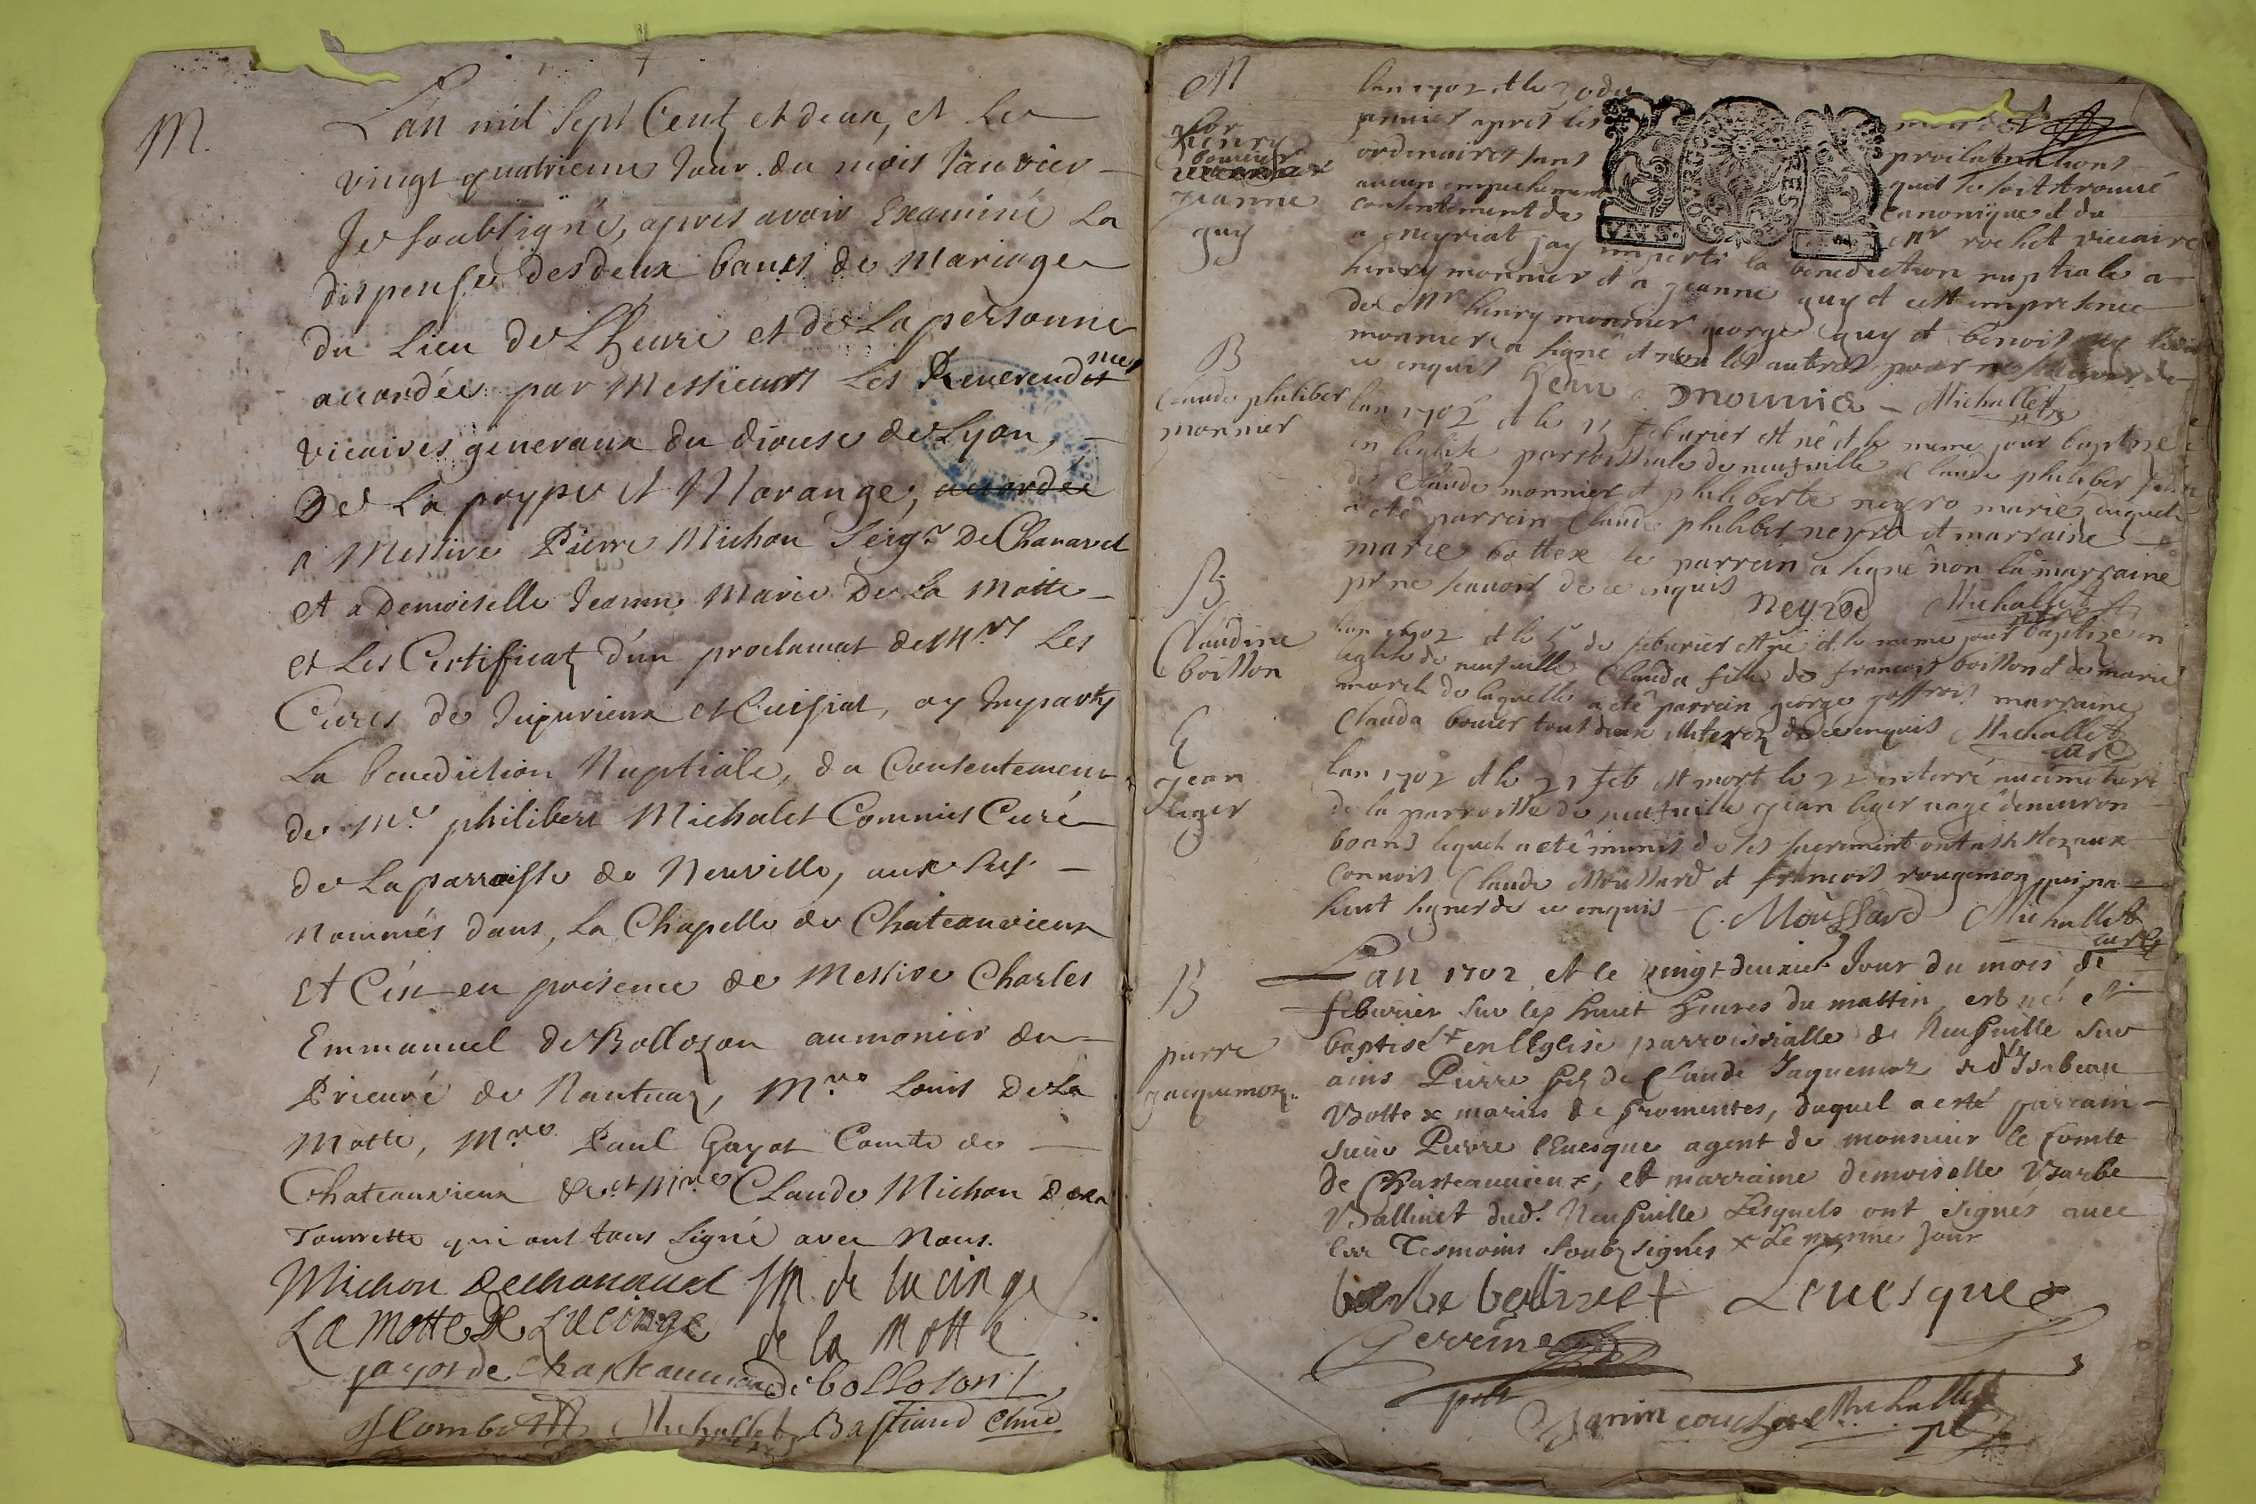 M.
L'an mil Sept Centz et deux, et Le
vingt quatrieme Jour du mois Janvier
Je soubsigné, apres avoir Examiné La
dispense des deux bancs de Mariage
du Lieu de L'heure et de La personne
accordée par Messieurs Les Reverendmes
vicaires generaux du diocese de Lyon,
De La poype et Morange, accordée
a Messire Pierre Michon Seigr De Chanavel
et a Demoiselle Jeanne Marie De La Motte
et Les Certificatz d'un proclamat de Mrs Les
Curés de Jujurieux et Cuisiat, ay Imparty
La benediction Nuptiale, du Consentement
de Mre philibert Michalet Commis Curé
de La parroisse de Neuville, aux sus
Nommés dans, La Chapelle de Chateauvieux
Et C'est en presence de Messire Charles
Emmanuel de Bollozon aumonier du
Prieuré de Nantua, Mre Louis De La
Motte, Mre Paul Gayot Comte de
Chateauvieux et Mre Claude Michon De La
Tourrette qui ont tous Signé avec Nous.
Michon dechanavel JM de lucinge
La Motte De Lucinge de la Motte
gayot de Chasteauvieux de bollozon
Michallet Bastiand Curé
M
Henry
Jeanne
guy
lan 1702 et le 20 de
janvier apres les
ordinaires sans proclamations
aucun empechement quil se soit trouvé
consentement de canonique et du
a neyriat jay Mr rochet viccaire
imparti la benediction nuptiale a
henry monnier et a jeanne guy et cest en presence
de Mr henry monnier george guy et benoit
monnier a signé et non les autres pour ne scavoir de
ce enquis Monnier Michallet
B
Claude philiber
monnier
lan 1702 et le 11 feburier est né et le meme jour baptisé
en leglise parroissiale de neufville Claude philiber fils
de Claude monnier et philiberte neyro mariés duquel
a eté parrain Claude philiber neyro et marraine
marie bottex le parrain a signé non la marraine
pr ne scavoir de ce enquis Neyrod Michallet
B
Claudine
boisson
lan 1702 et le de feburier est né et le meme jour baptize en
leglise de neufville Clauda fille de francois boisson et de marie
morel de laquelle a eté parrain george joffroi marraine
Clauda bouvier tout deux illiterez de ce enquis Michallet
curé
E
jean
leger
lan 1702 et le 21 feb est mort le 22 enterré au cimetiere
de la parroisse de neufville jean leger aagé denviron
60 ans lequel a eté munis de ses sacrement ont assistez aux
convois Claude Moussard et francois rougemon qui na
sceut signer de ce enquis C. Moussard Michallet
curé
B
pierre
jacquemoz
L'an 1702 et le vingt deuxie Jour du mois de
feburier sur les huict heures du mattin, est né et
baptisé x en l'Eglise parroissialle de Neufville sur
ains Pierre filz de Claude Jaquemoz et d'Isabeau
Bottex mariés de fromentes, duquel a esté parrain
sieur Pierre l'Euesque agent de monsieur le Comte
de Chasteauvieux, et marraine demoiselle Barbe
Ballinet dud. Neufville Lesquels ont signés avec
les Tesmoins soubzsignés x Le mesme Jour
barbe balinet Leuesque
Perrine
Janin Michallet